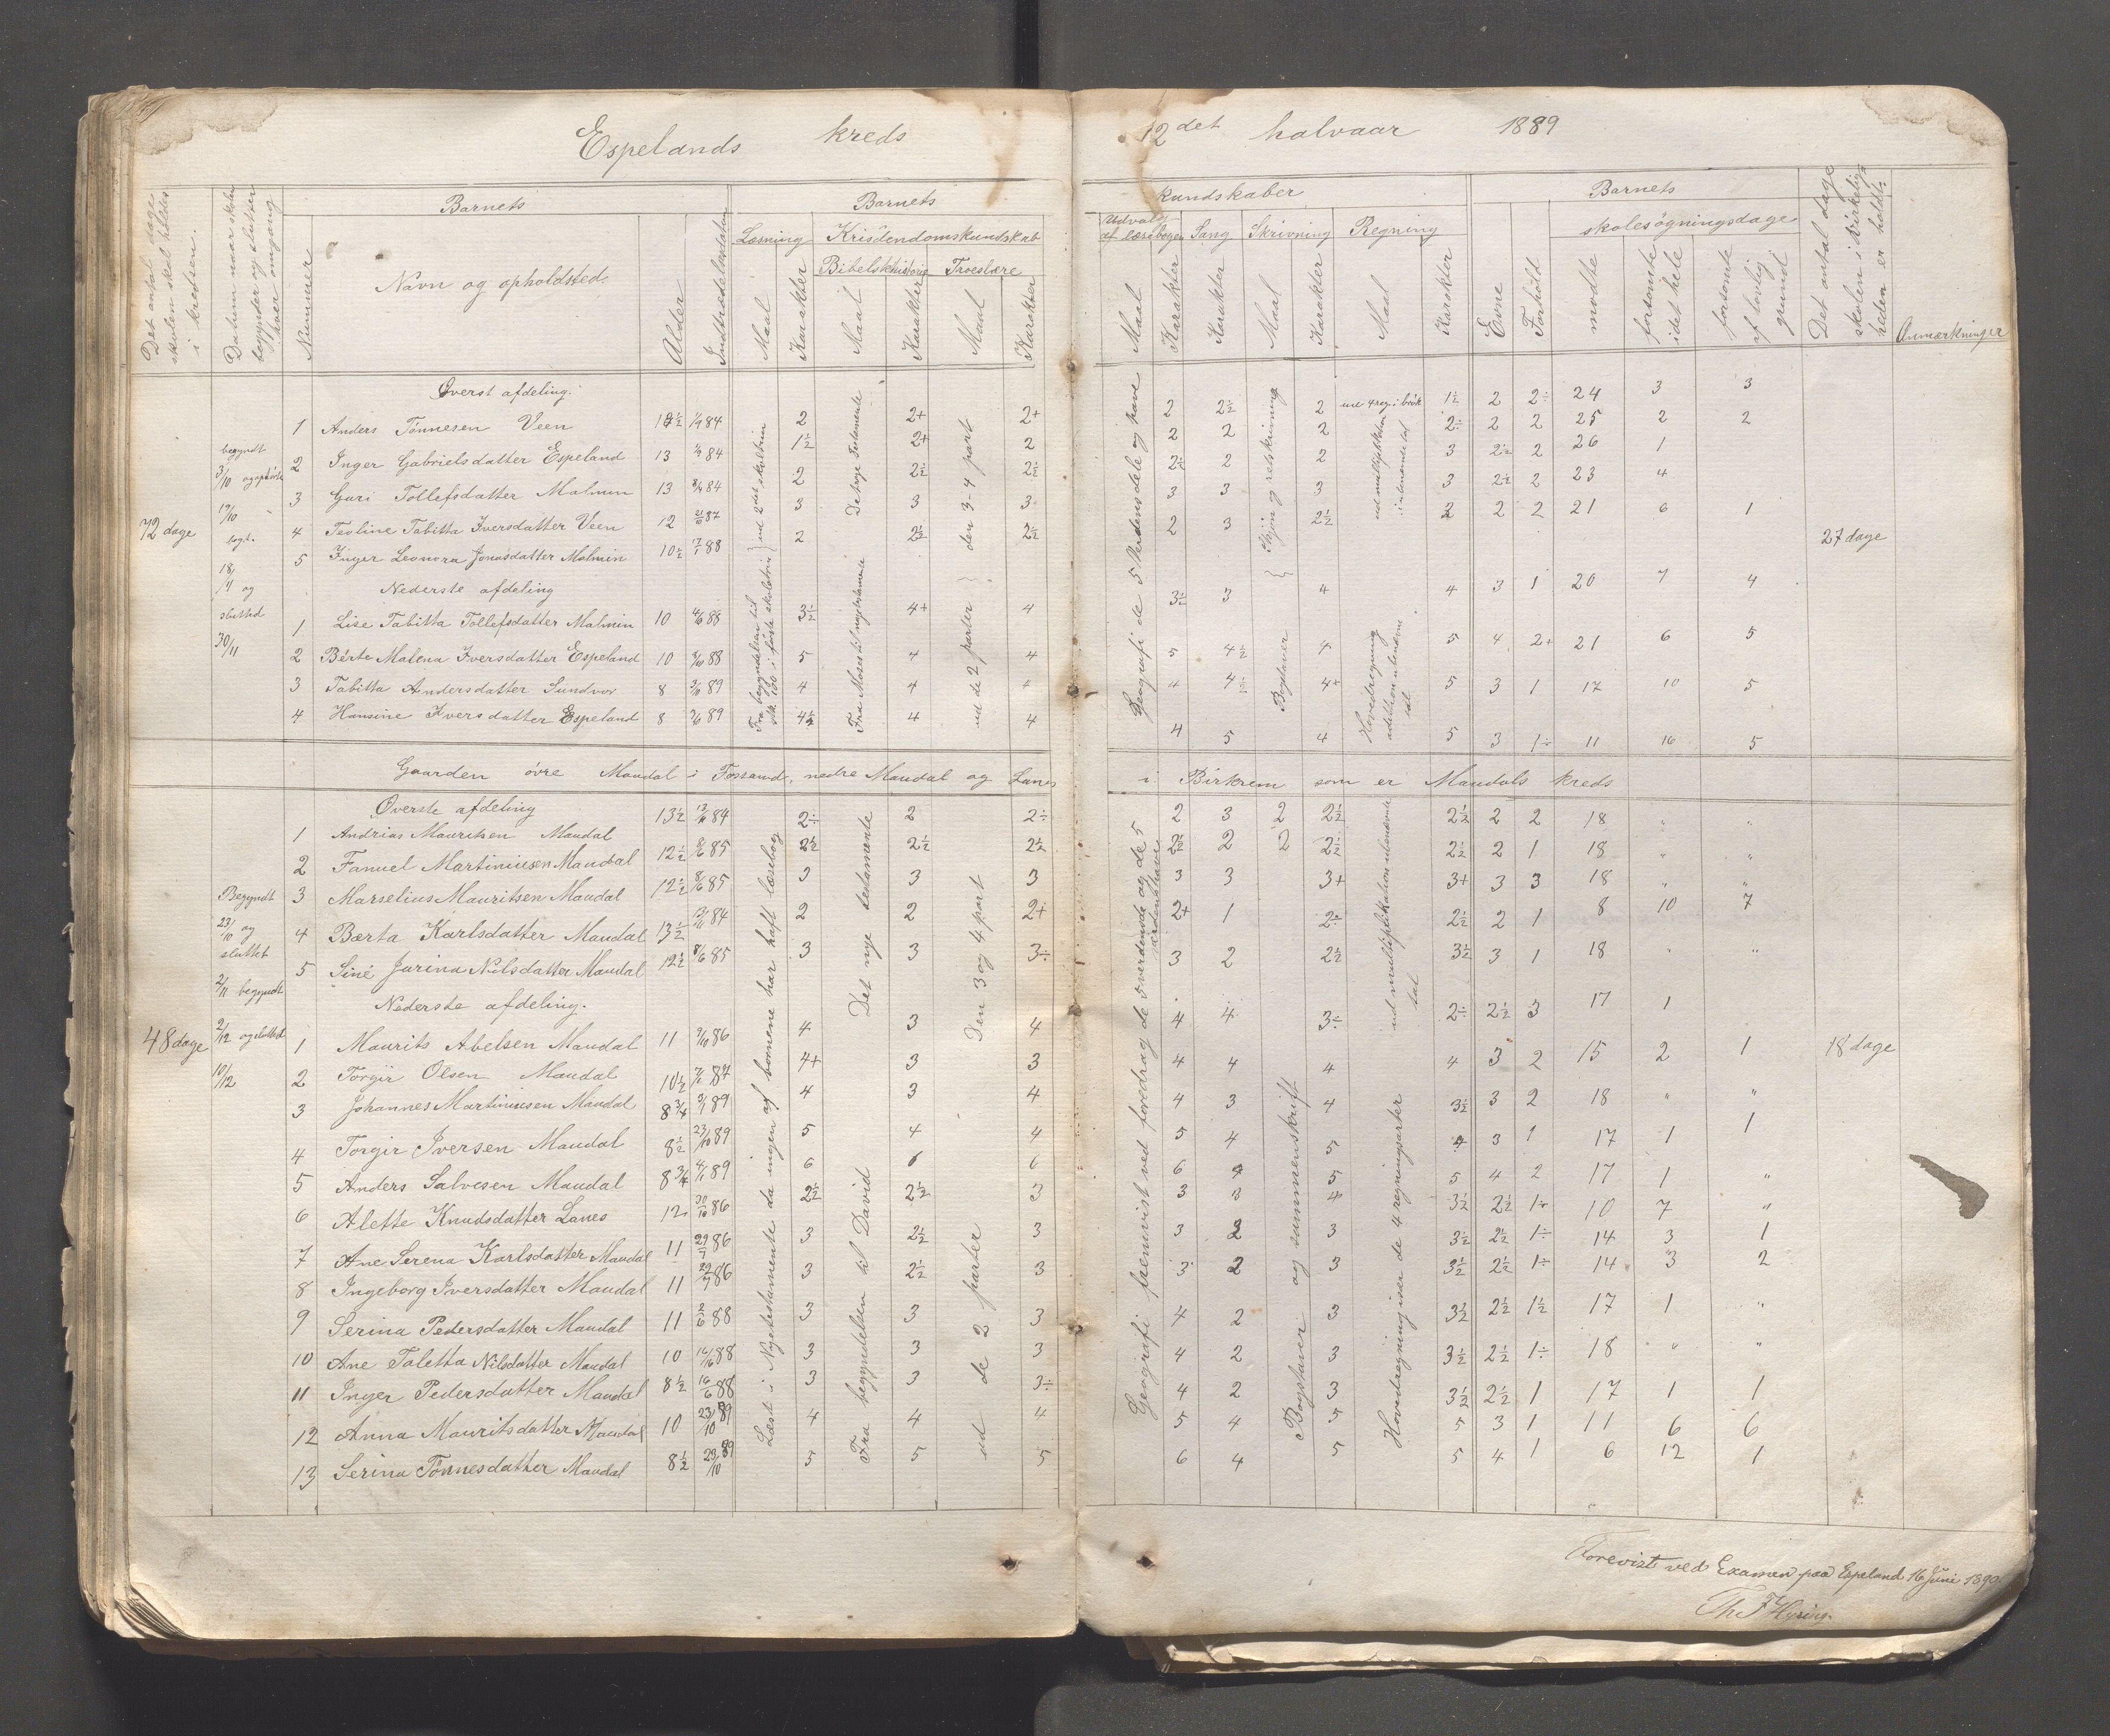 Espelands kreds 12det halvaar 1889
Det antal dage skolen skal holdes i kredsen.
Datum naar skolen begynder og slutter hver omgang
Nummer
Barnets
Navn og opholdsted.
Alder
Indtrædelsesdatum
Barnets kundskaber
Læsning
Maal
Karakter
Kristendomskundskab
Bibelskhistorie
Maal
Karakter
Troeslære
Maal
Karakter
Udvalg af læsebogen
Maal
Karakter
Sang
Karakter
Skrivning
Maal
Karakter
Regning
Maal
Karakter
Barnets
Evne
Forhold
skolesøgningsdage
mødte
forsømte i det hele
forsømte af lovlig grund
Det antal dage skolen i virkeligheden er holdt.
Anmærkninger
Øverst afdeling.
72 dage
begyndt 3/10 og ophørte 19/10
begt. 18/11 og slutted 30/11
27 dage
1 Anders Tønnesen Veen 2 2+ 2+ 2 2½ 2 1½ 2 2÷ 24 3 3
2 Inger Gabrielsdatter Espeland 13 84 1½ 2+ 2 2 2 2 2÷ 2 2 25 2 2
3 Guri Tollefsdatter Malmin 13 84 2 2½ 2½ 2½ 2 2 3 2½ 2 26 1
4 Teoline Tabitta Iversdatter Veen 12 87 3 3 3 3 3 3 3 2½ 2 23 4
5 Inger Leonora Jonasdatter Malmin 10½ 88 2 2½ 2½ 2 3 2½ 2 2 2 21 6 1
Nederste afdeling
1 Lise Tabitta Tollefsdatter Malmin 10 4/6 88 3½ 4+ 4 3½ 3 4 4 3 1 20 7 4
2 Bérte Malena Iversdatter Espeland 10 88 5 4 4 5 4½ 4 5 4 2+ 21 6 5
3 Tabitta Andersdatter Sundvor 8 89 4 4 4 4 4+ 5 3 1 17 10 5
4 Hansine Iversdatter Espeland 8 89 4½ 4 4 4 5 4 5 3 1÷ 11 16 5
Fra begyndelsen til stk. 100 i første skoletrin } ud 2det skoletrin
Fra Moses til nytestamente
Det nye Testamente
ud de 2 parter } den 3-4 part
Geografi de 5 Verdensdele og have
Bogstaver } Skjøn og retskrivning
Hovedregning addition ubenævnte tal
ud multiplikation i ubenævnte tal
une 4 reg. i brøk
Gaarden øvre Maudal i Forsand, nedre Maudal og Lanes i Birkrem som er Maudals kreds
Øverste afdeling
48 dage
Begyndt 23/10 og sluttet 2/11 begyndt 2/12 og sluttet 10/12
18 dage
1 Andrias Mauritsen Maudal 13½ 84 2÷ 2 2÷ 2 3 2 2½ 2½ 2 2 18 " "
2 Fanuel Martiniusen Maudal 12½ 85 2½ 2½ 2½ 2½ 2 2 2½ 2½ 2 1 18 " "
3 Marselius Mauritsen Maudal 12½ 85 3 3 3 3 3 3+ 3+ 3 3 18 " "
4 Bærta Karlsdatter Maudal 13½ 84 2 2 2+ 2+ 1 2÷ 2½ 2 1 8 10 7
5 Siné Jurina Nilsdatter Maudal 12½ 8/6 85 3 3 3÷ 3 2 2½ 3½ 3 1 18 " "
Nederste afdeling.
1 Maurits Abelsen Maudal 11 86 4 3 4 4 4 3÷ 2÷ 2½ 3 17 1
2 Torgir Olsen Maudal 10½ 87 4+ 3 3 4 4 4 4 3 2 15 2 1
3 Johannes Martiniusen Maudal 8¾ 89 4 3 4 4 3 4 3½ 3 2 18 " "
4 Torgir Iversen Maudal 8½ 23/10 89 5 4 4 5 4 5 4 3 1 17 1 1
5 Anders Salvesen Maudal 8¾ 4/1 89 6 6 6 6 4 5 5 4 2 17 1 "
6 Alette Knudsdatter Lanes 12 86 2½ 2½ 3 3 3 4 3½ 2½ 1÷ 10 7 "
7 Ane Serena Karlsdatter Maudal 11 29/7 86 3 2½ 3 3 2 3 3½ 2½ 1÷ 14 3 1
8 Ingeborg Iversdatter Maudal 11 29/7 86 3 2½ 3 3 2 3 3½ 2½ 1÷ 14 3 2
9 Serina Pedersdatter Maudal 11 88 3 3 3 4 2 3 3½ 2½ 1½ 17 1 "
10 Ane Taletta Nilsdatter Maudal 10 88 3 3 3 4 2 3 3½ 2½ 1÷ 18 " "
11 Inger Pedersdatter Maudal 8½ 16/6 88 3 3 3÷ 4 2 3 3½ 2½ 1 17 1 1
12 Anna Mauritsdatter Maudal 10 23/10 89 4 4 4 5 4 5 5 3 1 11 6 6
13 Serina Tønnesdatter Maudal 8½ 23/10 89 5 5 5 6 4 5 5 4 1 6 12 1
Læst i Nyetestamente da ingen af børnene har haft læsebog
Fra begyndelsen til David
Det nye testamente
ud de 2 parter
Den 3 og 4 part
Geografi fremvist ved foredrag de 5 verdensdele og de 5 verdenshave
Bogstaver og sammenskrift
Hovedregning især de 4 regningsarter
ud multiplikation ubenævnte tal
Forevist ved Examen paa Espeland 16 Juni 1890